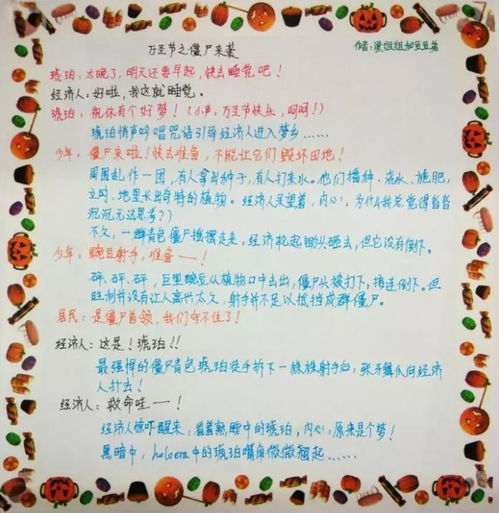 万圣节之僵尸来袭
作者：溪姐姐和豆豆酱
琥珀：太晚了，明天还要早起，快去睡觉吧！
经济人：好啦，我这就睡觉。
琥珀：祝你有个好梦！（小声，万圣节快乐，呵呵！）
琥珀悄声吟唱咒语引导经济人进入梦乡……
少年：僵尸来啦！快去准备，不能让它们毁坏田地！
周围乱作一团，有人拿出种子，有人打来水。他们播种、浇水、施肥，
立时，地里长出奇特的植物。经济人呆望着，内心：为什么我总觉得
沉沉无法思考？）
不久，一群青色僵尸摇摆走来，经济抡起锄头砸去，但它没有倒下。
少年：豌豆射手，准备——！
砰、砰、砰，巨型豌豆从植物口中击出，僵尸头被打下，接连倒下。但
胜利并没有让人高兴太久，射手并不足以抵挡成群僵尸。
居民：是僵尸首领，我们守不住了！
经济人：这是！琥珀！！
最强悍的僵尸青色琥珀徒手拆下一株株射手向，张牙舞爪向经济
人扑去！
经济人：救命哇——！
经济人惊吓醒来，看着熟睡中的琥珀，内心：原来是个梦！
黑暗中，holoera中的琥珀嘴角微微翘起……